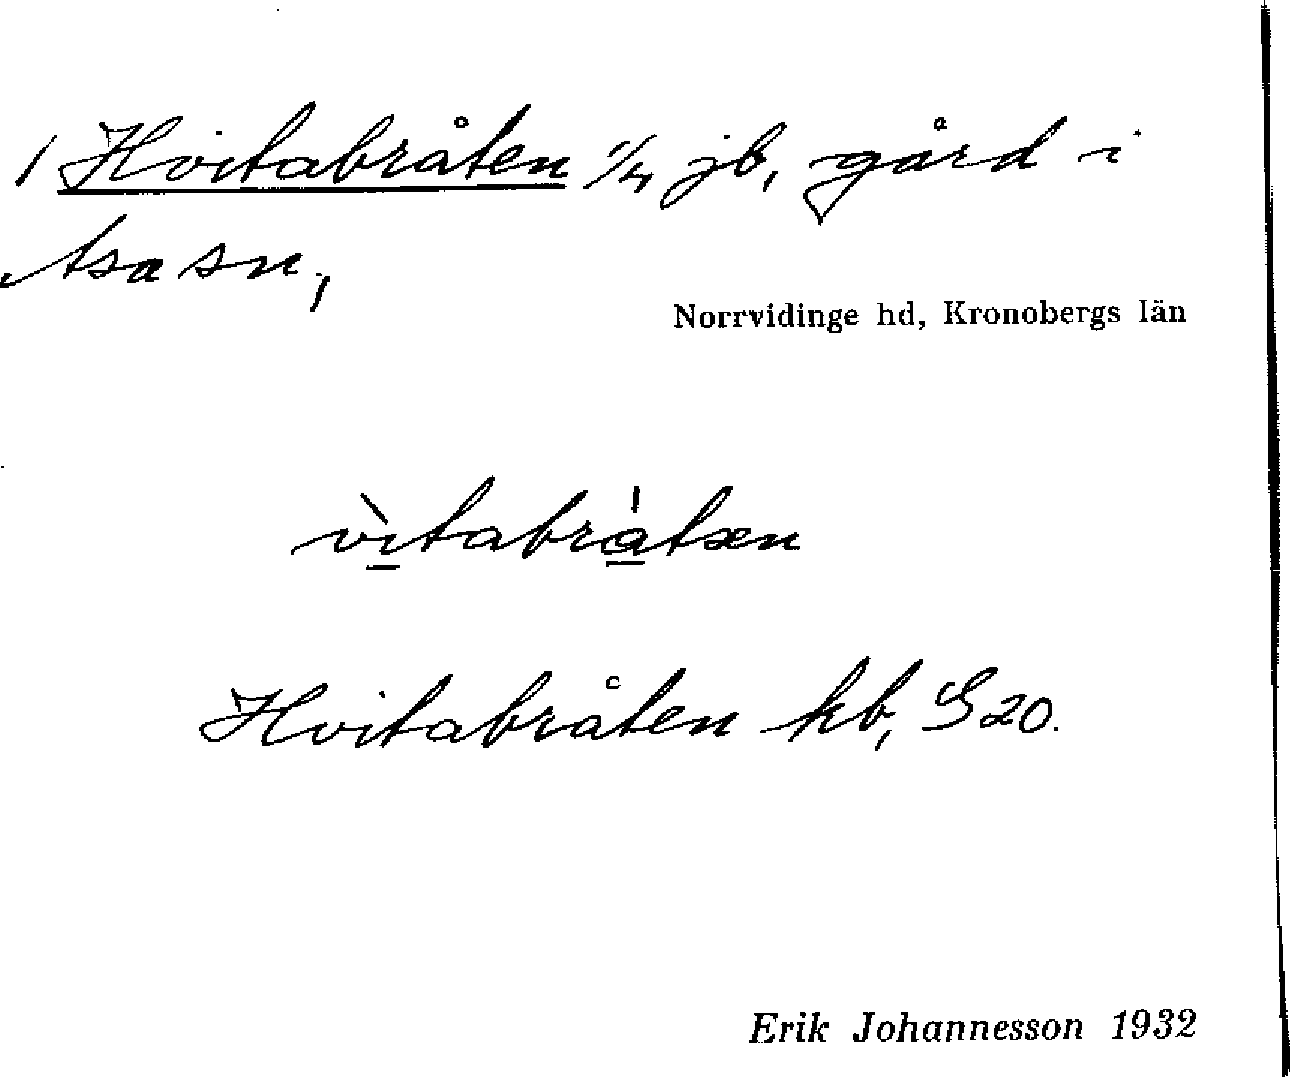 / Hvitabråten 1/4 jb, gård i
Asa sn,
Norrvidinge hd, Kronobergs län
vìtabrátæn
Hvitabråten kb, S20.
Erik Johannesson 1932